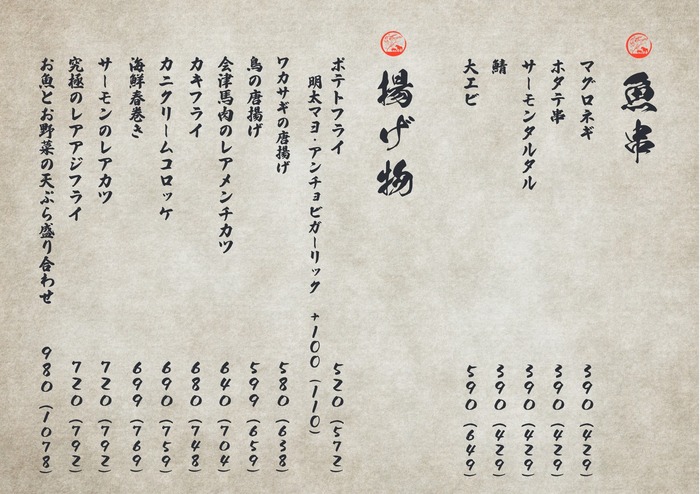 魚串
マグロネギ 390 (429)
ホタテ串 390 (429)
サーモンタルタル 390 (429)
鯖 390 (429)
大エビ 590 (649)
揚げ物
ポテトフライ 520 (572)
明太マヨ・アンチョビガーリック +100 (110)
ワカサギの唐揚げ 580 (638)
鳥の唐揚げ 599 (659)
会津馬肉のレアメンチカツ 640 (704)
カキフライ 680 (748)
カニクリームコロッケ 690 (759)
海鮮春巻き 699 (769)
サーモンのレアカツ 720 (792)
究極のレアアジフライ 720 (792)
お魚とお野菜の天ぷら盛り合わせ 980 (1078)